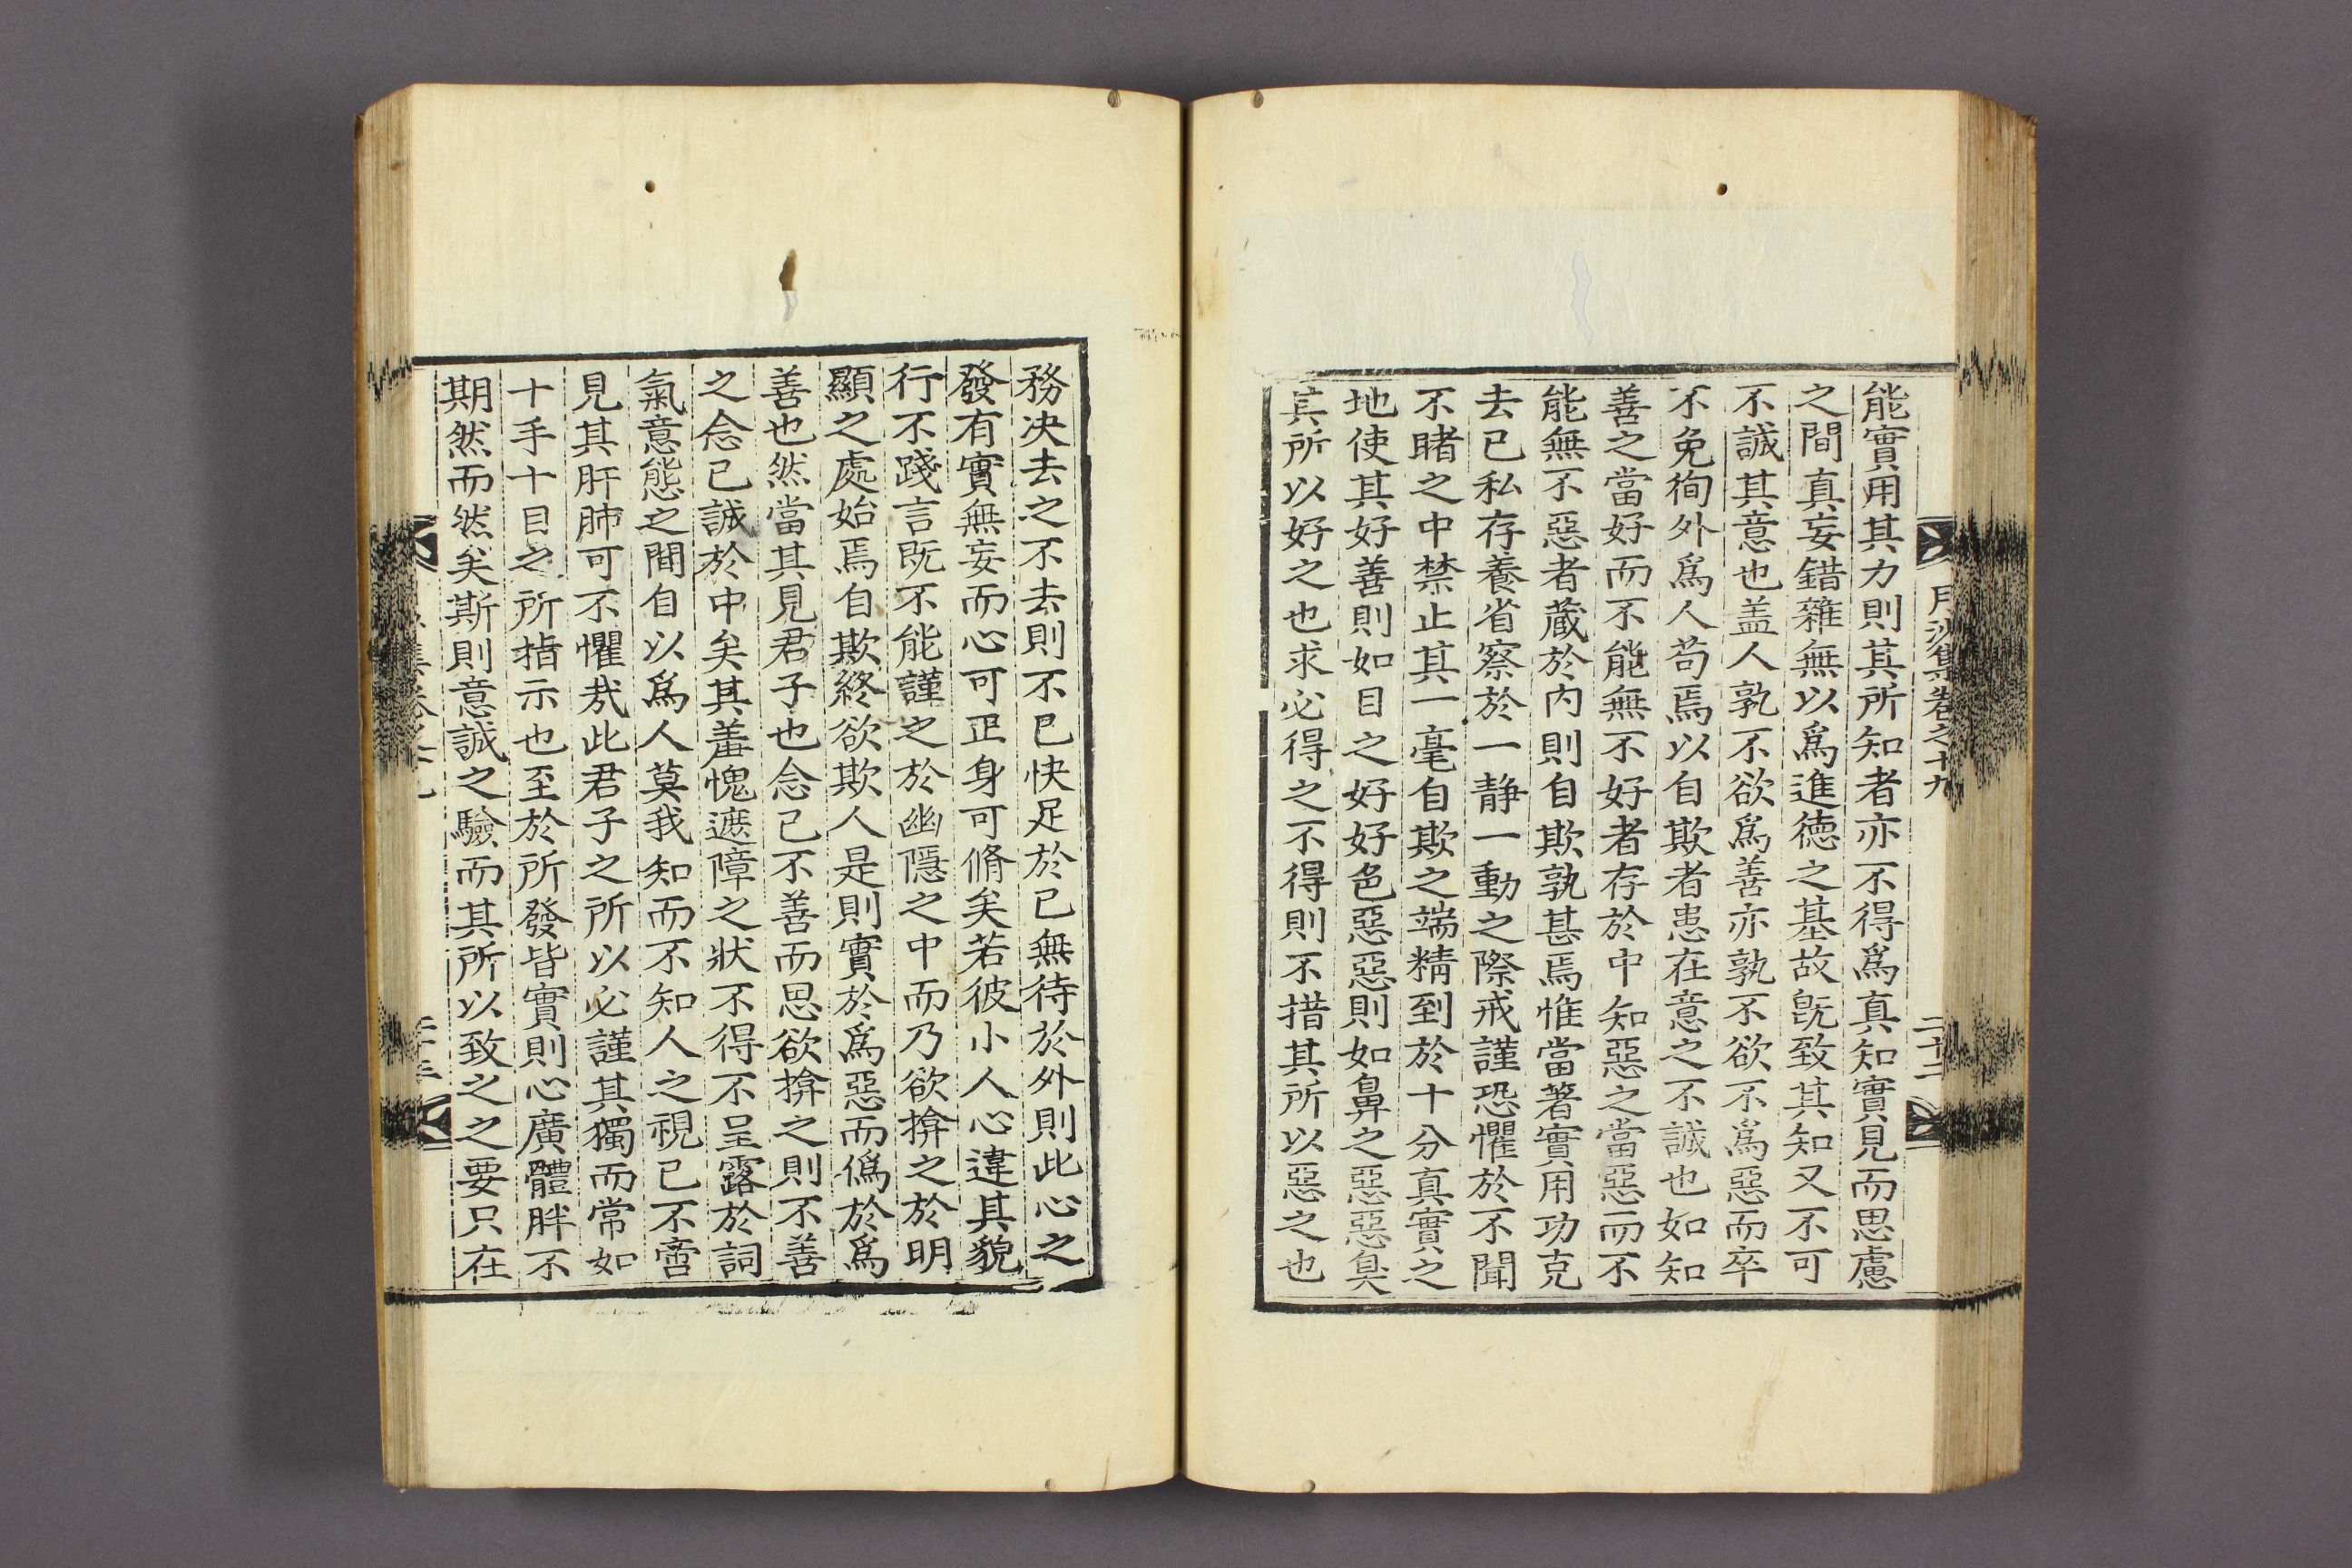 月沙集卷之十九
二十二
能實用其力則其所知者亦不得爲真知實見而思慮
之間真妄錯雜無以爲進德之基故旣致其知又不可
不誠其意也盖人孰不欲爲善亦孰不欲不爲惡而卒
不免徇外爲人苟焉以自欺者患在意之不誠也如知
善之當好而不能無不好者存於中知惡之當惡而不
能無不惡者藏於內則自欺孰甚焉惟當著實用功克
去已私存養省察於一靜一動之際戒謹恐懼於不聞
不睹之中禁止其一毫自欺之端精到於十分真實之
地使其好善則如目之好好色惡惡則如鼻之惡惡臭
其所以好之也求必得之不得則不措其所以惡之也
務决去之不去則不已快足於已無待於外則此心之
發有實無妄而心可正身可脩矣若彼小人心違其貌
行不踐言旣不能謹之於幽隱之中而乃欲揜之於明
顯之處始焉自欺終欲欺人是則實於爲惡而僞於爲
善也然當其見君子也念已不善而思欲揜之則不善
之念已誠於中矣其羞愧遮障之狀不得不呈露於詞
氣意態之間自以爲人莫我知而不知人之視已不啻
見其肝肺可不懼㢤此君子之所以必謹其獨而常如
十手十目之所指示也至於所發皆實則心廣體胖不
期然而然矣斯則意誠之驗而其所以致之之要只在